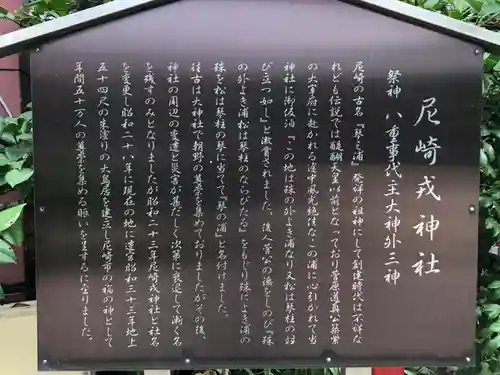 尼崎戎神社
祭神 八重事代主大神外三神
尼崎の古名『琴之浦』発祥の祖神にして創建時代は不詳な
れども伝説では醍醐天皇以前となっており菅原道真公築紫
の大宰府に赴かれる途中風光絶佳なこの浦に心引かれて当
神社に御依泊『この地は殊の外よき浦なり又松は琴柱の
び立つ如し』と激賞されました。後人菅公の徳をしのび『殊
の外よき浦松は琴柱のならびたる』をもじり殊によき浦の
殊を松は琴柱の琴に当てて『琴の浦』と名付けました。
往古は大神社で朝野の尊崇を集めておりましたがその後、
神社の周辺の変遷と災害が甚だしく次第に衰退して漸く名
を残すのみとなりましたが昭和二十三年尼崎戎神社と社名
を変更し昭和二十八年に現在の地に遷宮昭和三十三年地上
五十四尺の朱塗りの大鳥居を建立し尼崎市の福の神として
年間五十万人の尊崇を集める賑いを呈するになりました。